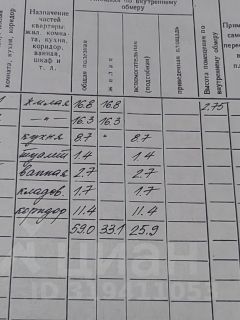 внутреннему
обмеру
Назначение
частей
квартиры:
жил. комна-
та, кухня,
коридор,
ванная,
шкаф и
т. п.
общая полезная
жилая
вспомогательная
(подсобная)
приведенная площадь
Высота помещения по
внутреннему обмеру
комната, кухня, коридор
Жилая 16.8 16.8 2,75
—"— 16.3 16.3
кухня 8.7 " 8.7
туалет 1.4 1.4
ванная 2.7 2.7
кладов. 1.7 1.7
коридор 11.4 11.4
59.0 33.1 25.9